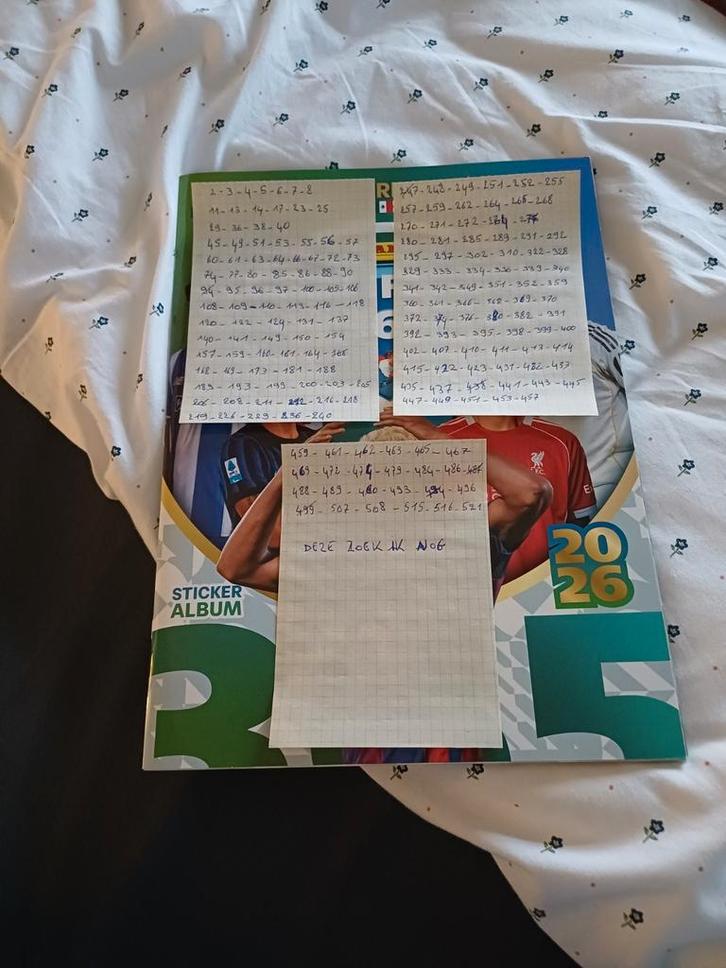 2-3-4-5-6-7-8
11-13-14-17-23-25
29-36-38-40
45-49-51-53-55-56-57
60-61-63-64-66-67-72-73
74-77-80-85-86-88-90
94-95-96-97-100-105-106
108-109-110-113-116-118
120-122-124-131-137
140-141-149-150-154
157-159-160-161-164-165
168-169-173-181-188
189-193-199-200-203-205
206-208-211-212-216-218
219-226-229-236-240
247-248-249-251-252-255
257-259-262-264-265-268
270-271-272-
280-281-285-289-291-292
295-297-302-310-322-328
329-333-334-336-339-340
341-342-349-351-352-359
360-361-366-368-369-370
372-374-376-380-382-391
392-393-395-398-399-400
402-407-410-411-413-414
415-422-423-431-432-433
435-437-438-441-443-445
447-449-451-453-457
459-461-462-463-465-467
469-472-474-479-484-486-487
488-489-490-493-494-496
499-507-508-515-516-521
DEZE ZOEK IK NOG
STICKER
ALBUM
20
26
3 5